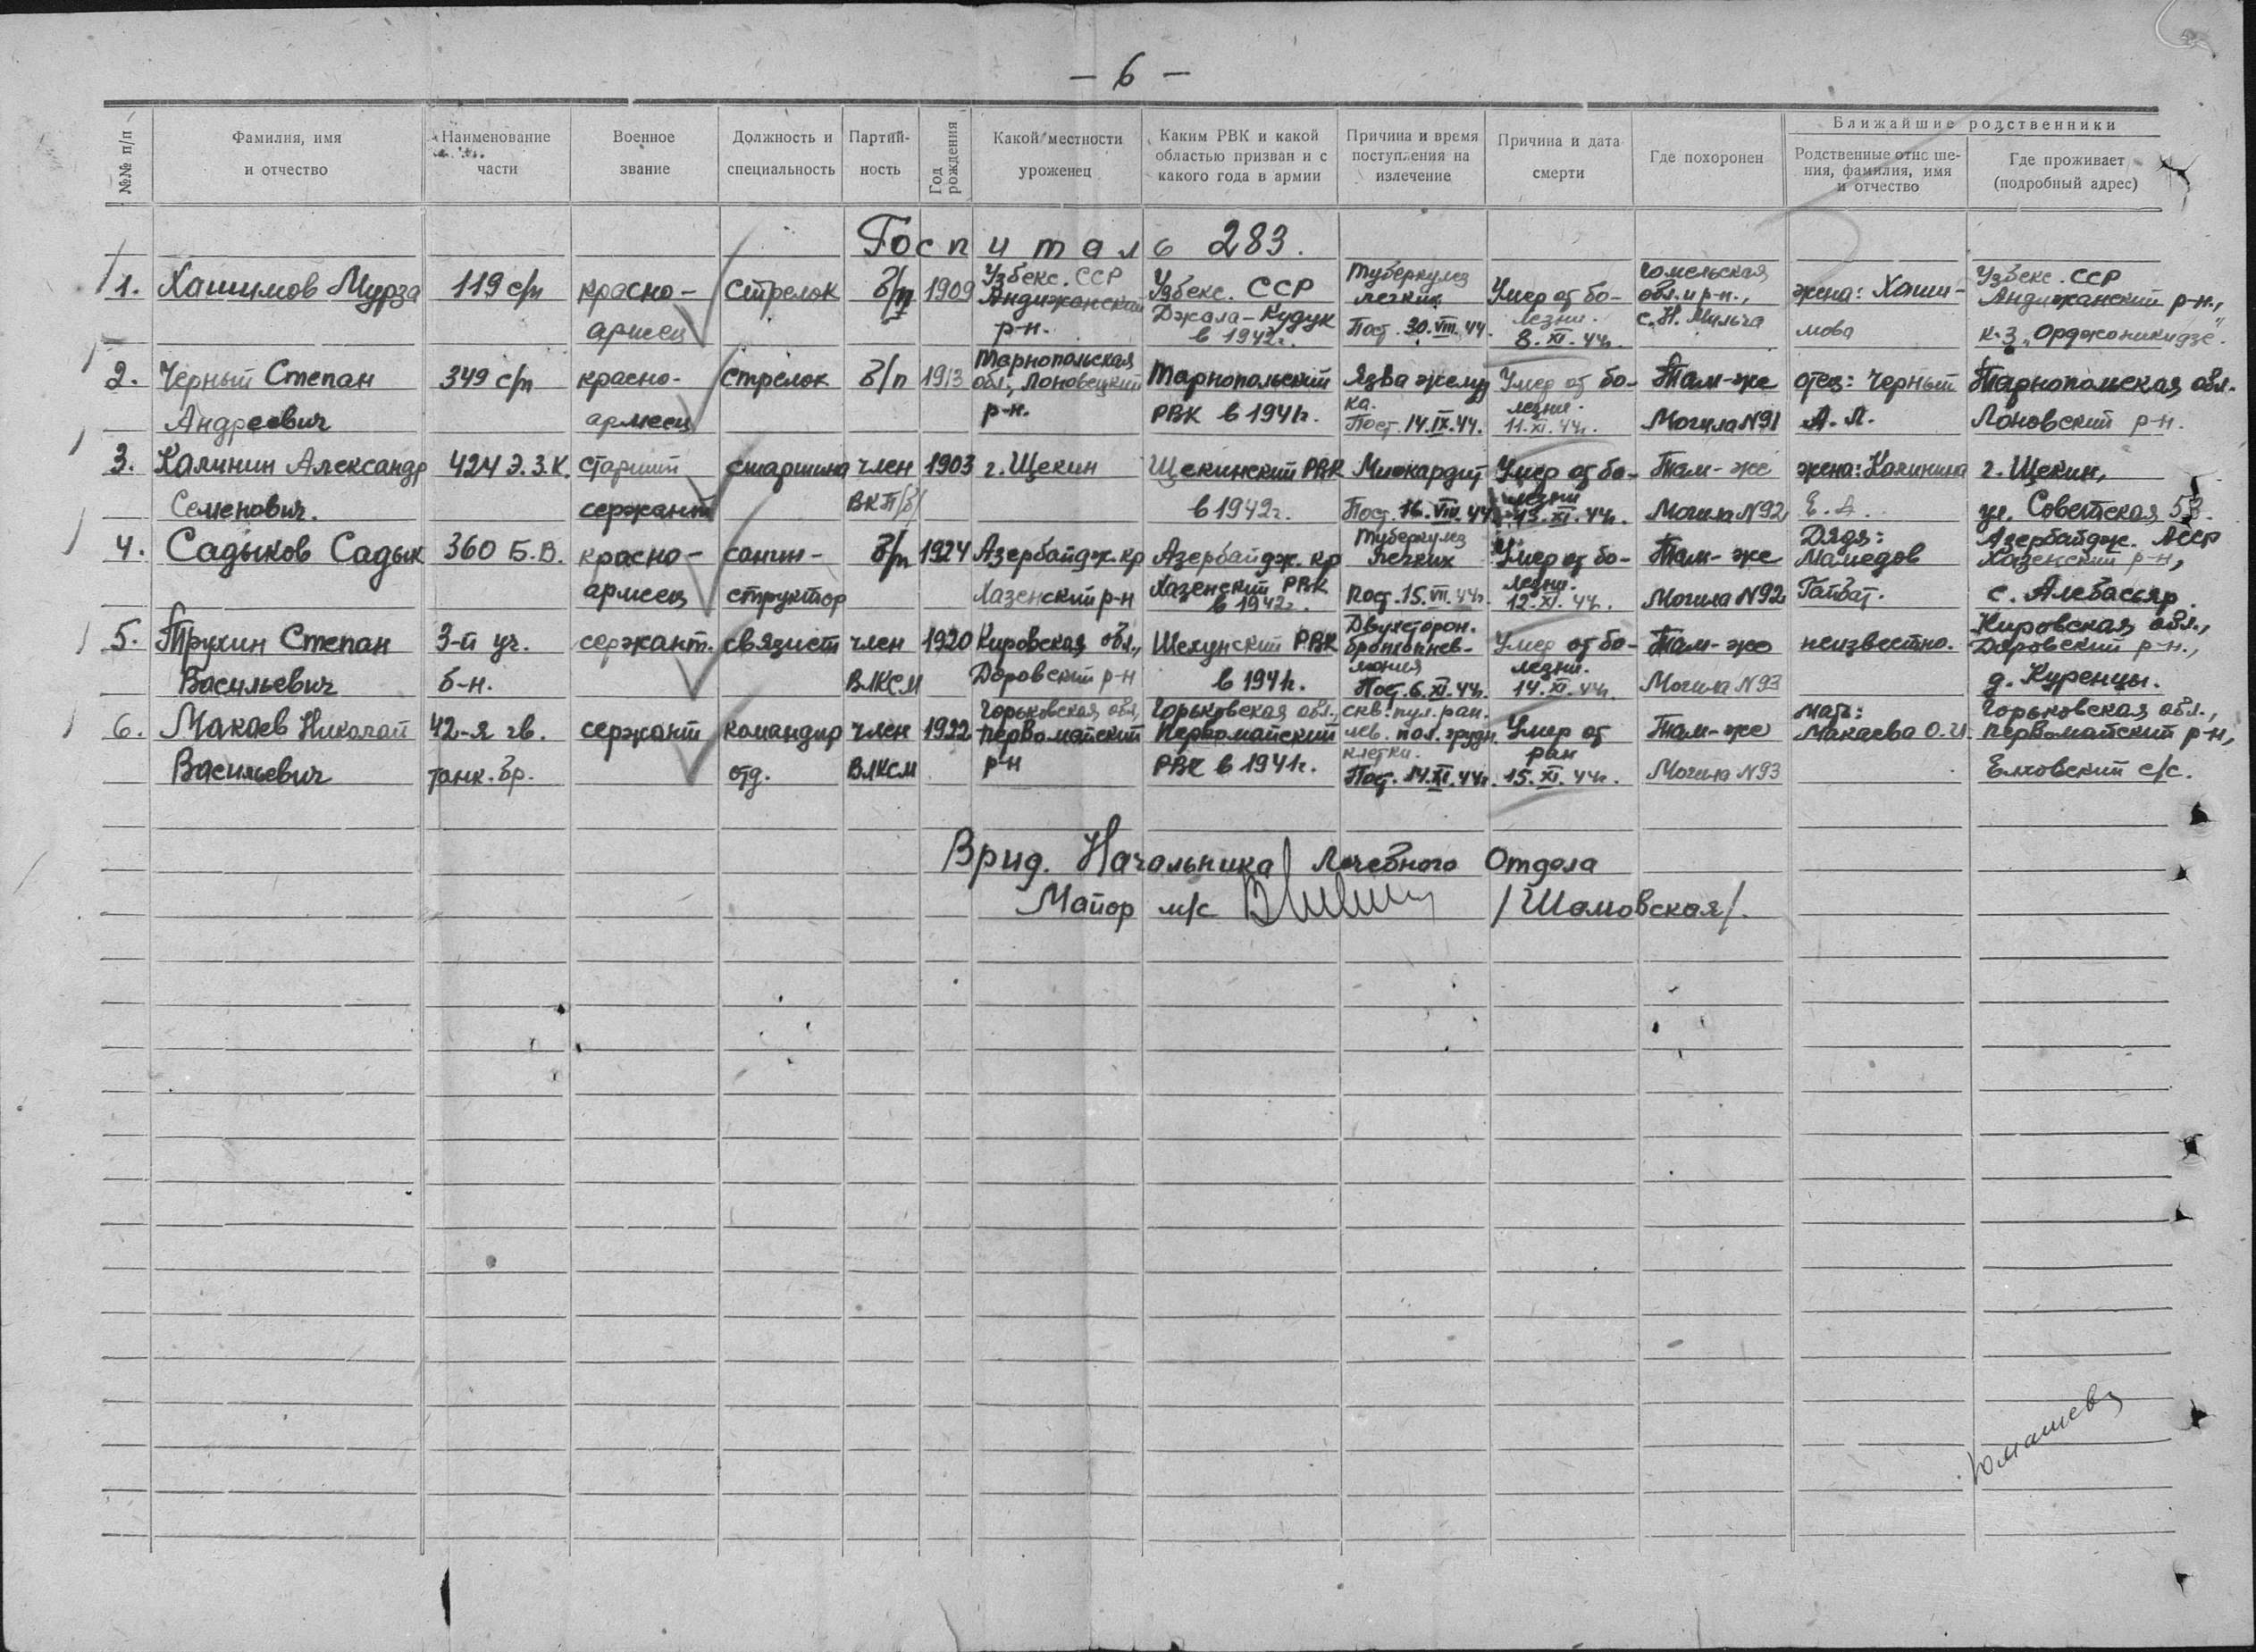 – 6 –
№№ п/п
Фамилия, имя и отчество
Наименование части
Военное звание
Должность и специальность
Партийность
Год рождения
Какой местности уроженец
Каким РВК и какой областью призван и с какого года в армии
Причина и время поступления на излечение
Причина и дата смерти
Где похоронен
Ближайшие родственники
Родственные отно ше-ния, фамилия, имя и отчество
Где проживает (подробный адрес)
Госпиталь 283.
1. Хашимов Мурза 119 с/п красно-армеец Стрелок б/п 1909 Узбекс. ССР Андижанский р-н. Узбекс. ССР Джала-Кудук в 1942г. Туберкулез легких Пост. 30.VIII.44. Умер от бо-лезни. 8.XI.44г. Гомельская обл. и р-н., с. Н. Мильча жена: Хаши-мова Узбекс. ССР Андижанский р-н., к-з „Орджоникидзе".
2. Черный Степан Андреевич 349 с/п красно-армеец стрелок б/п 1913 Тарнопольская обл., Лоновецкий р-н. Тарнопольский РВК в 1941г. Язва желуд ка. Пост. 14.IX.44. Умер от бо-лезни. 11.XI.44г. Там-же Могила N91 отец: Черный А. Л. Тарнопольская обл. Лоновский р-н.
3. Калинин Александр Семенович. 424 Э.З.К. старший сержант старшина член ВКП/б/ 1903 г. Щекин Щекинский РВК в 1942г. Миокардит Пост. 16.VIII.44 Умер от бо-лезни 13.XI.44г. Там-же Могила N92 жена: Калинина Е. А. г. Щекин, ул. Советская 53.
4. Садыков Садык 360 Б.В. красно-армеец санин-структор б/п 1924 Азербайдж. кр Хазенский р-н Азербайдж. кр Хазенский РВК в 1942г. Туберкулез легких Пост. 15.VII.44г. Умер от бо-лезни. 12.XI.44г. Там-же Могила N92 Дядя: Мамедов Азербайдж. АССР Хазенский р-н, с. Алебасьяр.
5. Трухин Степан Васильевич 3-й уч. б-н. сержант. связист член ВЛКСМ 1920 Кировская обл., Даровский р-н Шехунский РВК в 1941г. Двухсторон. бронхопнев-мония Пост. 6.XI.44г. Умер от бо-лезни. 14.XI.44г. Там-же Могила N93 неизвестно. Кировская обл., Даровский р-н., д. Куренцы.
6. Макаев Николай Васильевич 42-я гв. танк. бр. сержант командир отд. член ВЛКСМ 1922 Горьковская обл, Первомайский р-н Горьковская обл., Первомайский РВК в 1941г. скв. пул. ран. лев. пол. грудн. клетки. Пост. 14.XI.44г. Умер от ран 15.XI.44г. Там-же Могила N93 мать: Макаева О.И. Горьковская обл., Первомайский р-н, Елховский с/с.
Врид. Начальника Лечебного Отдела
Майор м/с /Шамовская/.